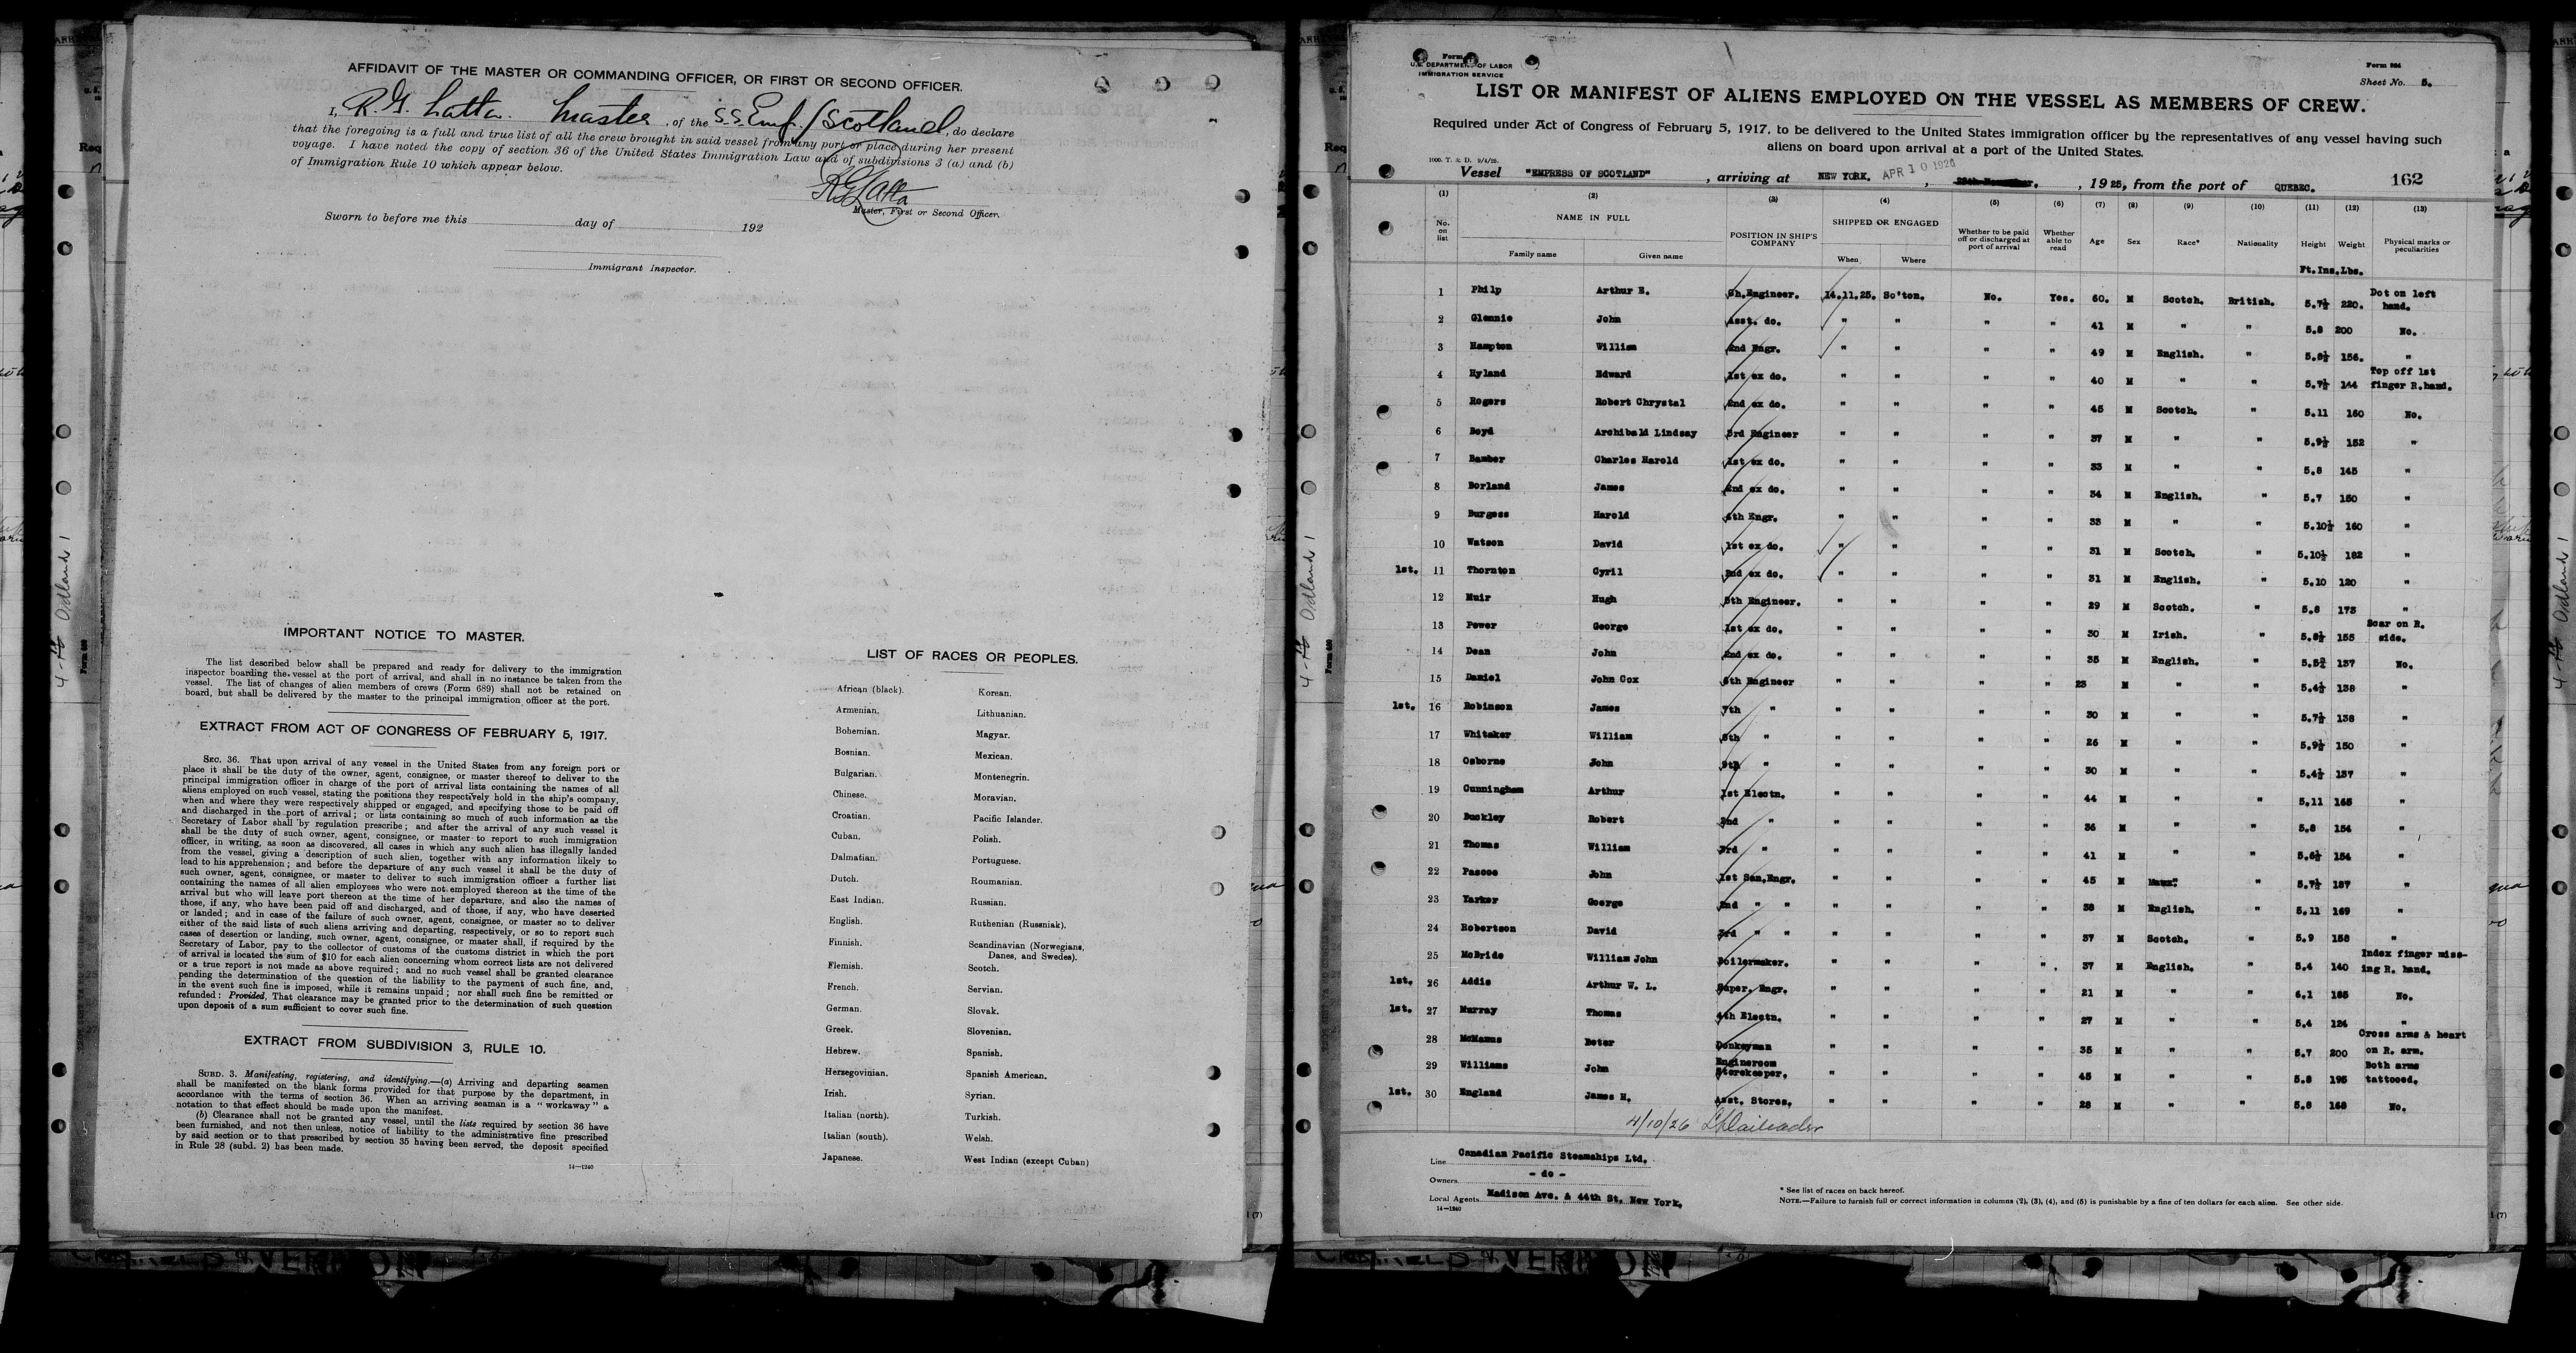 AFFIDAVIT OF THE MASTER OR COMMANDING OFFICER, OR FIRST OR SECOND OFFICER.
I, R. G. Latta. Master, of the S.S. Emp./Scotland, do declare
that the foregoing is a full and true list of all the crew brought in said vessel from any port or place during her present
voyage. I have noted the copy of section 36 of the United States Immigration Law and of subdivisions 3 (a) and (b)
of Immigration Rule 10 which appear below.
RGLatta
Master, First or Second Officer.
Sworn to before me this day of 192
Immigrant Inspector.
IMPORTANT NOTICE TO MASTER.
The list described below shall be prepared and ready for delivery to the immigration
inspector boarding the vessel at the port of arrival, and shall in no instance be taken from the
vessel. The list of changes of alien members of crews (Form 689) shall not be retained on
board, but shall be delivered by the master to the principal immigration officer at the port.
EXTRACT FROM ACT OF CONGRESS OF FEBRUARY 5, 1917.
SEC. 36. That upon arrival of any vessel in the United States from any foreign port or
place it shall be the duty of the owner, agent, consignee, or master thereof to deliver to the
principal immigration officer in charge of the port of arrival lists containing the names of all
aliens employed on such vessel, stating the positions they respectively hold in the ship's company,
when and where they were respectively shipped or engaged, and specifying those to be paid off
and discharged in the port of arrival; or lists containing so much of such information as the
Secretary of Labor shall by regulation prescribe; and after the arrival of any such vessel it
shall be the duty of such owner, agent, consignee, or master to report to such immigration
officer, in writing, as soon as discovered, all cases in which any such alien has illegally landed
from the vessel, giving a description of such alien, together with any information likely to
lead to his apprehension; and before the departure of any such vessel it shall be the duty of
such owner, agent, consignee, or master to deliver to such immigration officer a further list
containing the names of all alien employees who were not employed thereon at the time of the
arrival but who will leave port thereon at the time of her departure, and also the names of
those, if any, who have been paid off and discharged, and of those, if any, who have deserted
or landed; and in case of the failure of such owner, agent, consignee, or master so to deliver
either of the said lists of such aliens arriving and departing, respectively, or so to report such
cases of desertion or landing, such owner, agent, consignee, or master shall, if required by the
Secretary of Labor, pay to the collector of customs of the customs district in which the port
of arrival is located the sum of $10 for each alien concerning whom correct lists are not delivered
or a true report is not made as above required; and no such vessel shall be granted clearance
pending the determination of the question of the liability to the payment of such fine, and,
in the event such fine is imposed, while it remains unpaid; nor shall such fine be remitted or
refunded: Provided, That clearance may be granted prior to the determination of such question
upon deposit of a sum sufficient to cover such fine.
EXTRACT FROM SUBDIVISION 3, RULE 10.
SUBD. 3. Manifesting, registering, and identifying.—(a) Arriving and departing seamen
shall be manifested on the blank forms provided for that purpose by the department, in
accordance with the terms of section 36. When an arriving seaman is a "workaway" a
notation to that effect should be made upon the manifest.
(b) Clearance shall not be granted any vessel, until the lists required by section 36 have
been furnished, and not then unless, notice of liability to the administrative fine prescribed
by said section or to that prescribed by section 35 having been served, the deposit specified
in Rule 28 (subd. 2) has been made.
14—1240
LIST OF RACES OR PEOPLES.
African (black). Korean.
Armenian. Lithuanian.
Bohemian. Magyar.
Bosnian. Mexican.
Bulgarian. Montenegrin.
Chinese. Moravian.
Croatian. Pacific Islander.
Cuban. Polish.
Dalmatian. Portuguese.
Dutch. Roumanian.
East Indian. Russian.
English. Ruthenian (Russniak).
Finnish. Scandinavian (Norwegians,
Danes, and Swedes).
Flemish. Scotch.
French. Servian.
German. Slovak.
Greek. Slovenian.
Hebrew. Spanish.
Herzegovinian. Spanish American.
Irish. Syrian.
Italian (north). Turkish.
Italian (south). Welsh.
Japanese. West Indian (except Cuban)
Form
U.S. DEPARTMENT OF LABOR
IMMIGRATION SERVICE
Form 964
Sheet No. 5.
LIST OR MANIFEST OF ALIENS EMPLOYED ON THE VESSEL AS MEMBERS OF CREW.
Required under Act of Congress of February 5, 1917, to be delivered to the United States immigration officer by the representatives of any vessel having such
aliens on board upon arrival at a port of the United States.
1000. T. & D. 9/4/25.
Vessel "EMPRESS OF SCOTLAND", arriving at NEW YORK. APR 10 1926, 28th November., 1925, from the port of QUEBEC. 162
(1) (2) (3) (4) (5) (6) (7) (8) (9) (10) (11) (12) (13)
No. on list NAME IN FULL POSITION IN SHIP'S COMPANY SHIPPED OR ENGAGED Whether to be paid off or discharged at port of arrival Whether able to read Age Sex Race* Nationality Height Weight Physical marks or peculiarities
Family name Given name When Where
Ft.Ins. Lbs.
1 Philp Arthur E. Ch.Engineer. 14.11.25. So'ton. No. Yes. 60. M Scotch. British. 5.7½ 220. Dot on left hand.
2 Glennie John Asst. do. " " " " 41 M " " 5.8 200 No.
3 Hampton William 2nd Engr. " " " " 49 M English. " 5.8½ 156. "
4 Hyland Edward 1st ex do. " " " " 40 M " " 5.7½ 144 Top off 1st finger R.hand.
5 Rogers Robert Chrystal 2nd ex do. " " " " 45 M Scotch. " 5.11 160 No.
6 Boyd Archibald Lindsay 3rd Engineer " " " " 37 M " " 5.9½ 152 "
7 Bamber Charles Harold 1st ex do. " " " " 33 M " " 5.8 145 "
8 Borland James 2nd ex do. " " " " 34 M English. " 5.7 150 "
9 Burgess Harold 4th Engr. " " " " 33 M " " 5.10½ 160 "
10 Watson David 1st ex do. " " " " 31 M Scotch. " 5.10½ 182 "
1st. 11 Thornton Cyril 2nd ex do. " " " " 31 M English. " 5.10 120 "
12 Muir Hugh 5th Engineer. " " " " 29 M Scotch. " 5.8 175 "
13 Power George 1st ex do. " " " " 30 M Irish. " 5.8½ 155 Scar on R. side.
14 Dean John 2nd ex do. " " " " 35 M English. " 5.5¾ 137 No.
15 Daniel John Cox 6th Engineer " " " " 23 M " " 5.4½ 138 "
1st. 16 Robinson James 7th " " " " " 30 M " " 5.7½ 138 "
17 Whitaker William 8th " " " " " 26 M " " 5.9½ 150 "
18 Osborne John 9th " " " " " 30 M " " 5.4½ 137 "
19 Cunningham Arthur 1st Electn. " " " " 44 M " " 5.11 165 "
20 Buckley Robert 2nd " " " " " 36 M " " 5.8 154 "
21 Thomas William 3rd " " " " " 41 M " " 5.6½ 154 "
22 Pascoe John 1st San.Engr. " " " " 45 M Manx. " 5.7½ 187 "
23 Yarker George 2nd " " " " " " 38 M English. " 5.11 169 "
24 Robertson David 3rd " " " " " " 37 M Scotch. " 5.9 158 "
25 McBride William John Boilermaker. " " " " 37 M English. " 5.4 140 Index finger miss-ing R. hand.
1st. 26 Addis Arthur W. L. Super. Engr. " " " " 21 M " " 6.1 185 No.
1st. 27 Murray Thomas 4th Electn. " " " " 27 M " " 5.4 124 "
28 McManus Peter Donkeyman " " " " 35 M " " 5.7 200 Cross arms & heart on R. arm.
29 Williams John Engineroom Storekeeper. " " " " 45 M " " 5.8 195 Both arms tattooed.
1st. 30 England James H. Asst. Stores. " " " " 28 M " " 5.8 168 No.
4/10/26
Line Canadian Pacific Steamships Ltd.
Owners - do -
Local Agents Madison Ave. & 44th St. New York.
14—1240
* See list of races on back hereof.
NOTE.—Failure to furnish full or correct information in columns (2), (3), (4), and (5) is punishable by a fine of ten dollars for each alien. See other side.